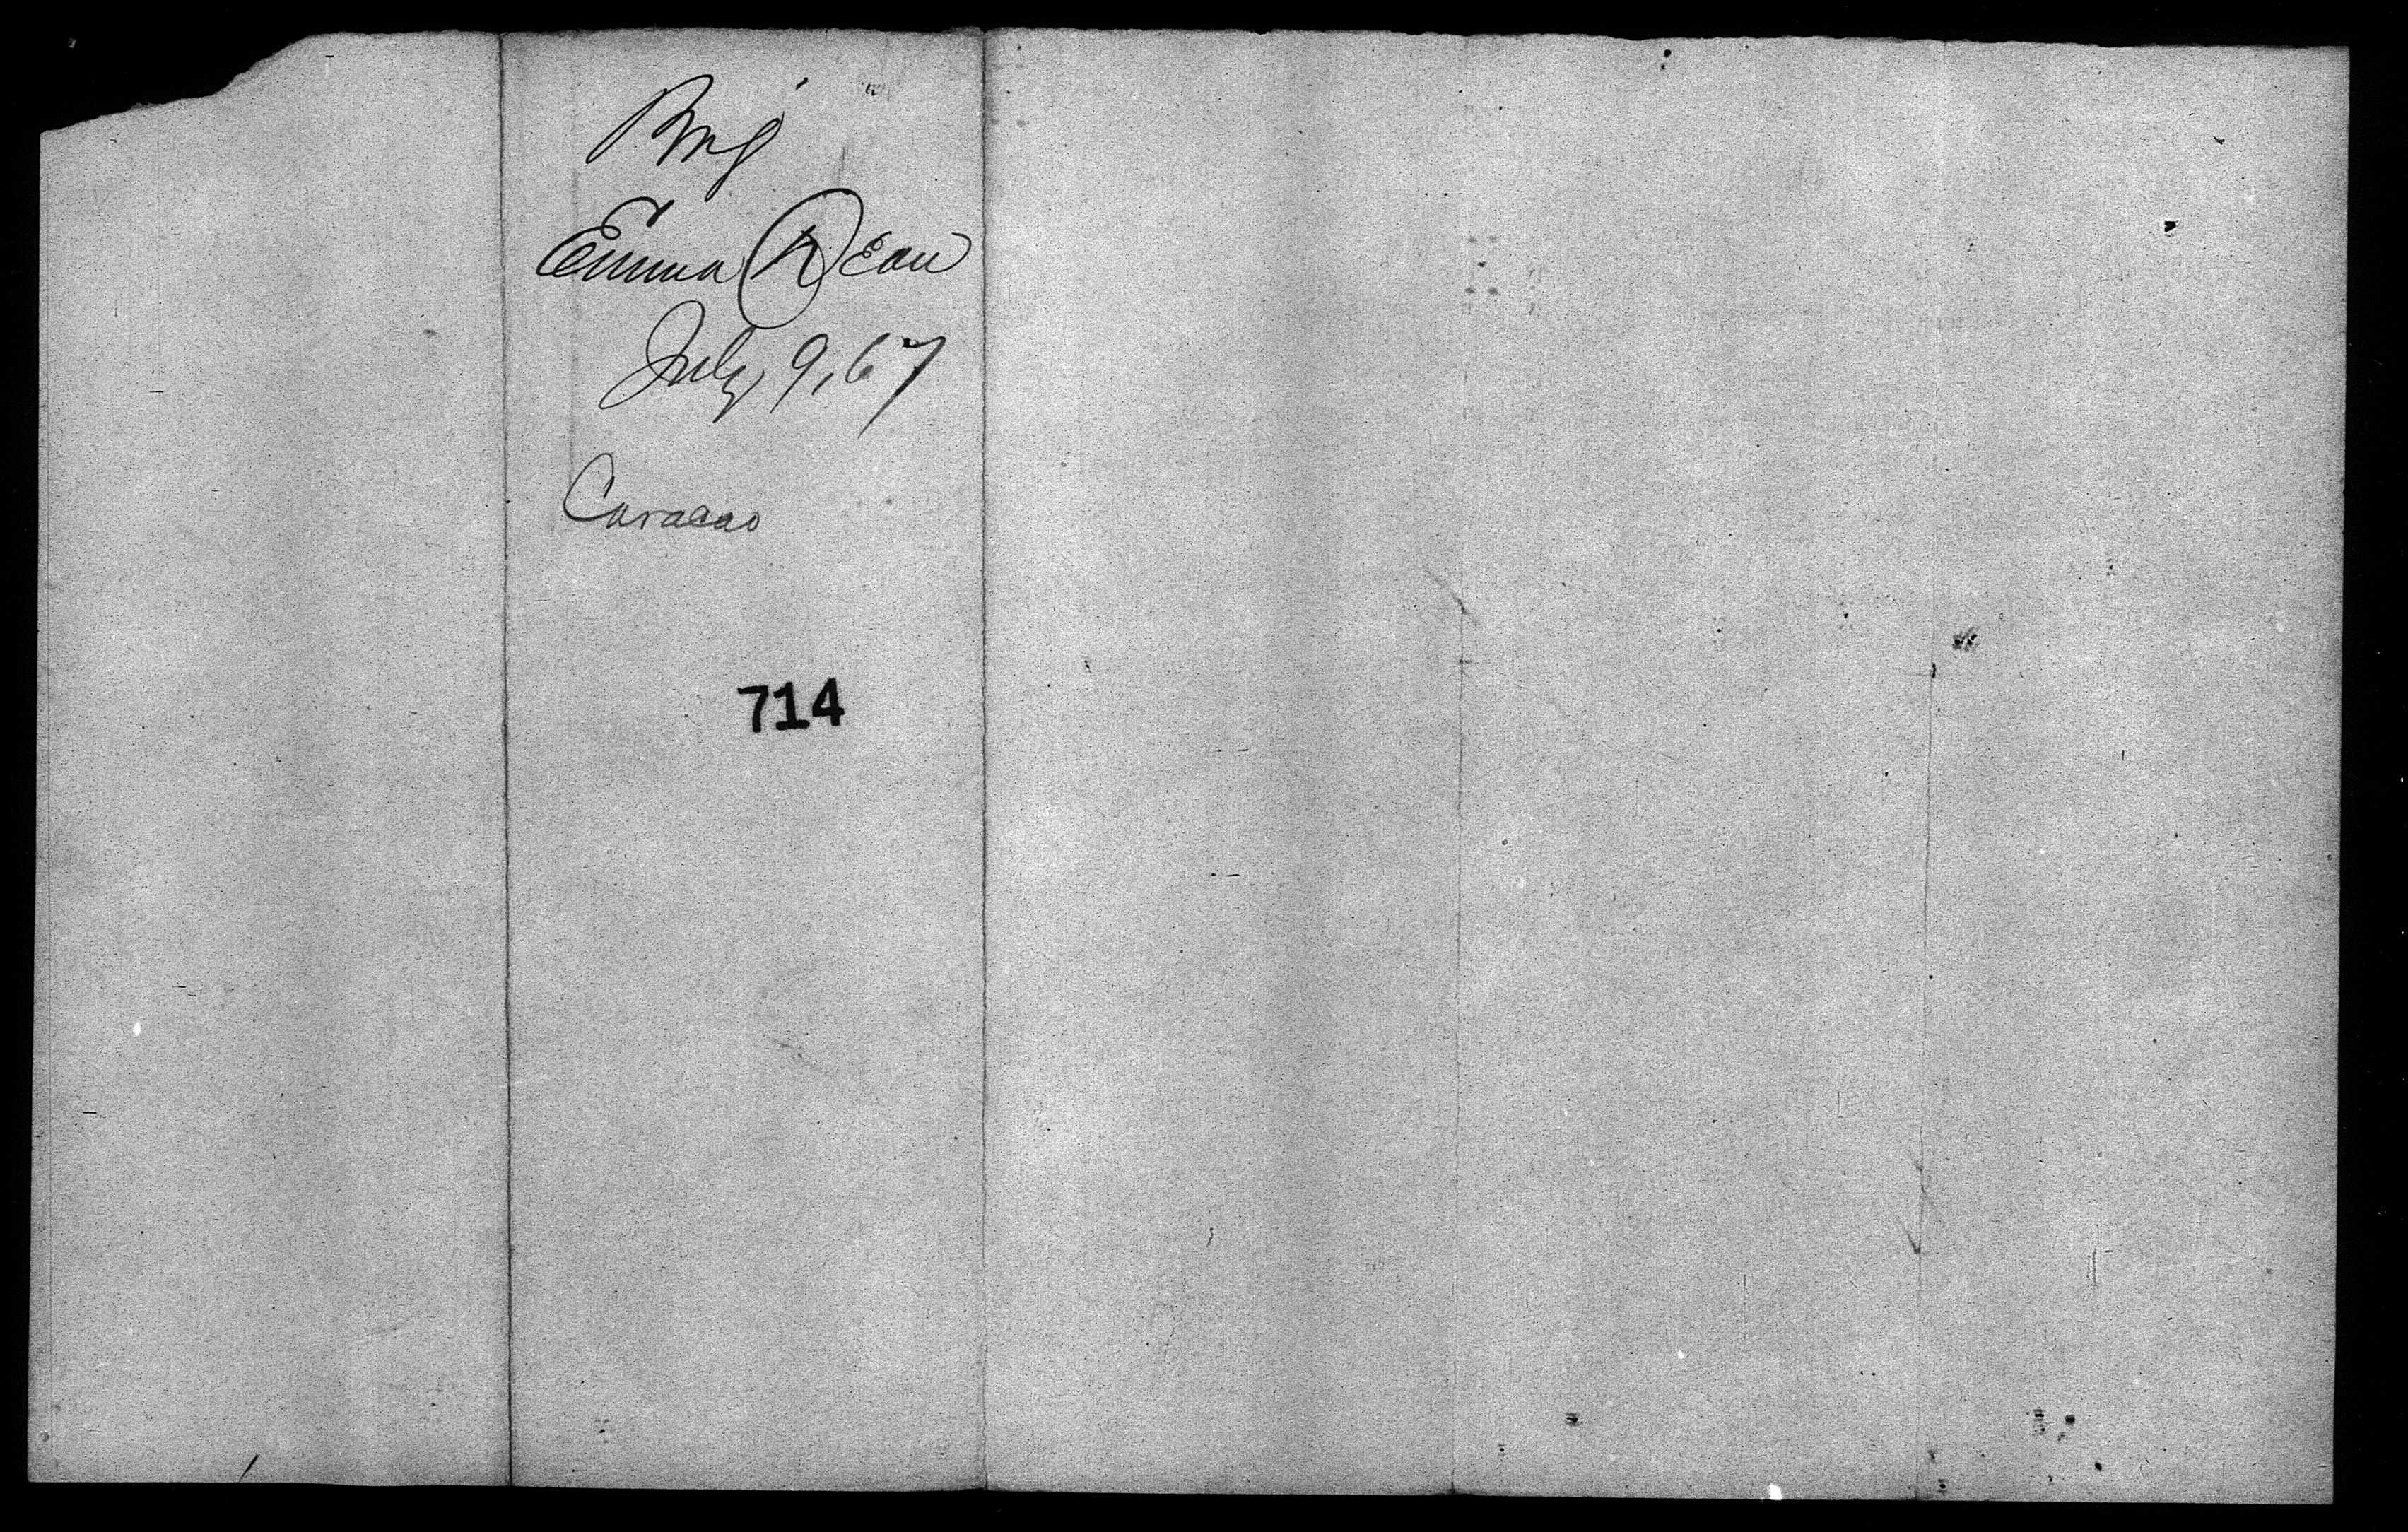 Brig
Emma Dean
July 9, 67
Curacao
714